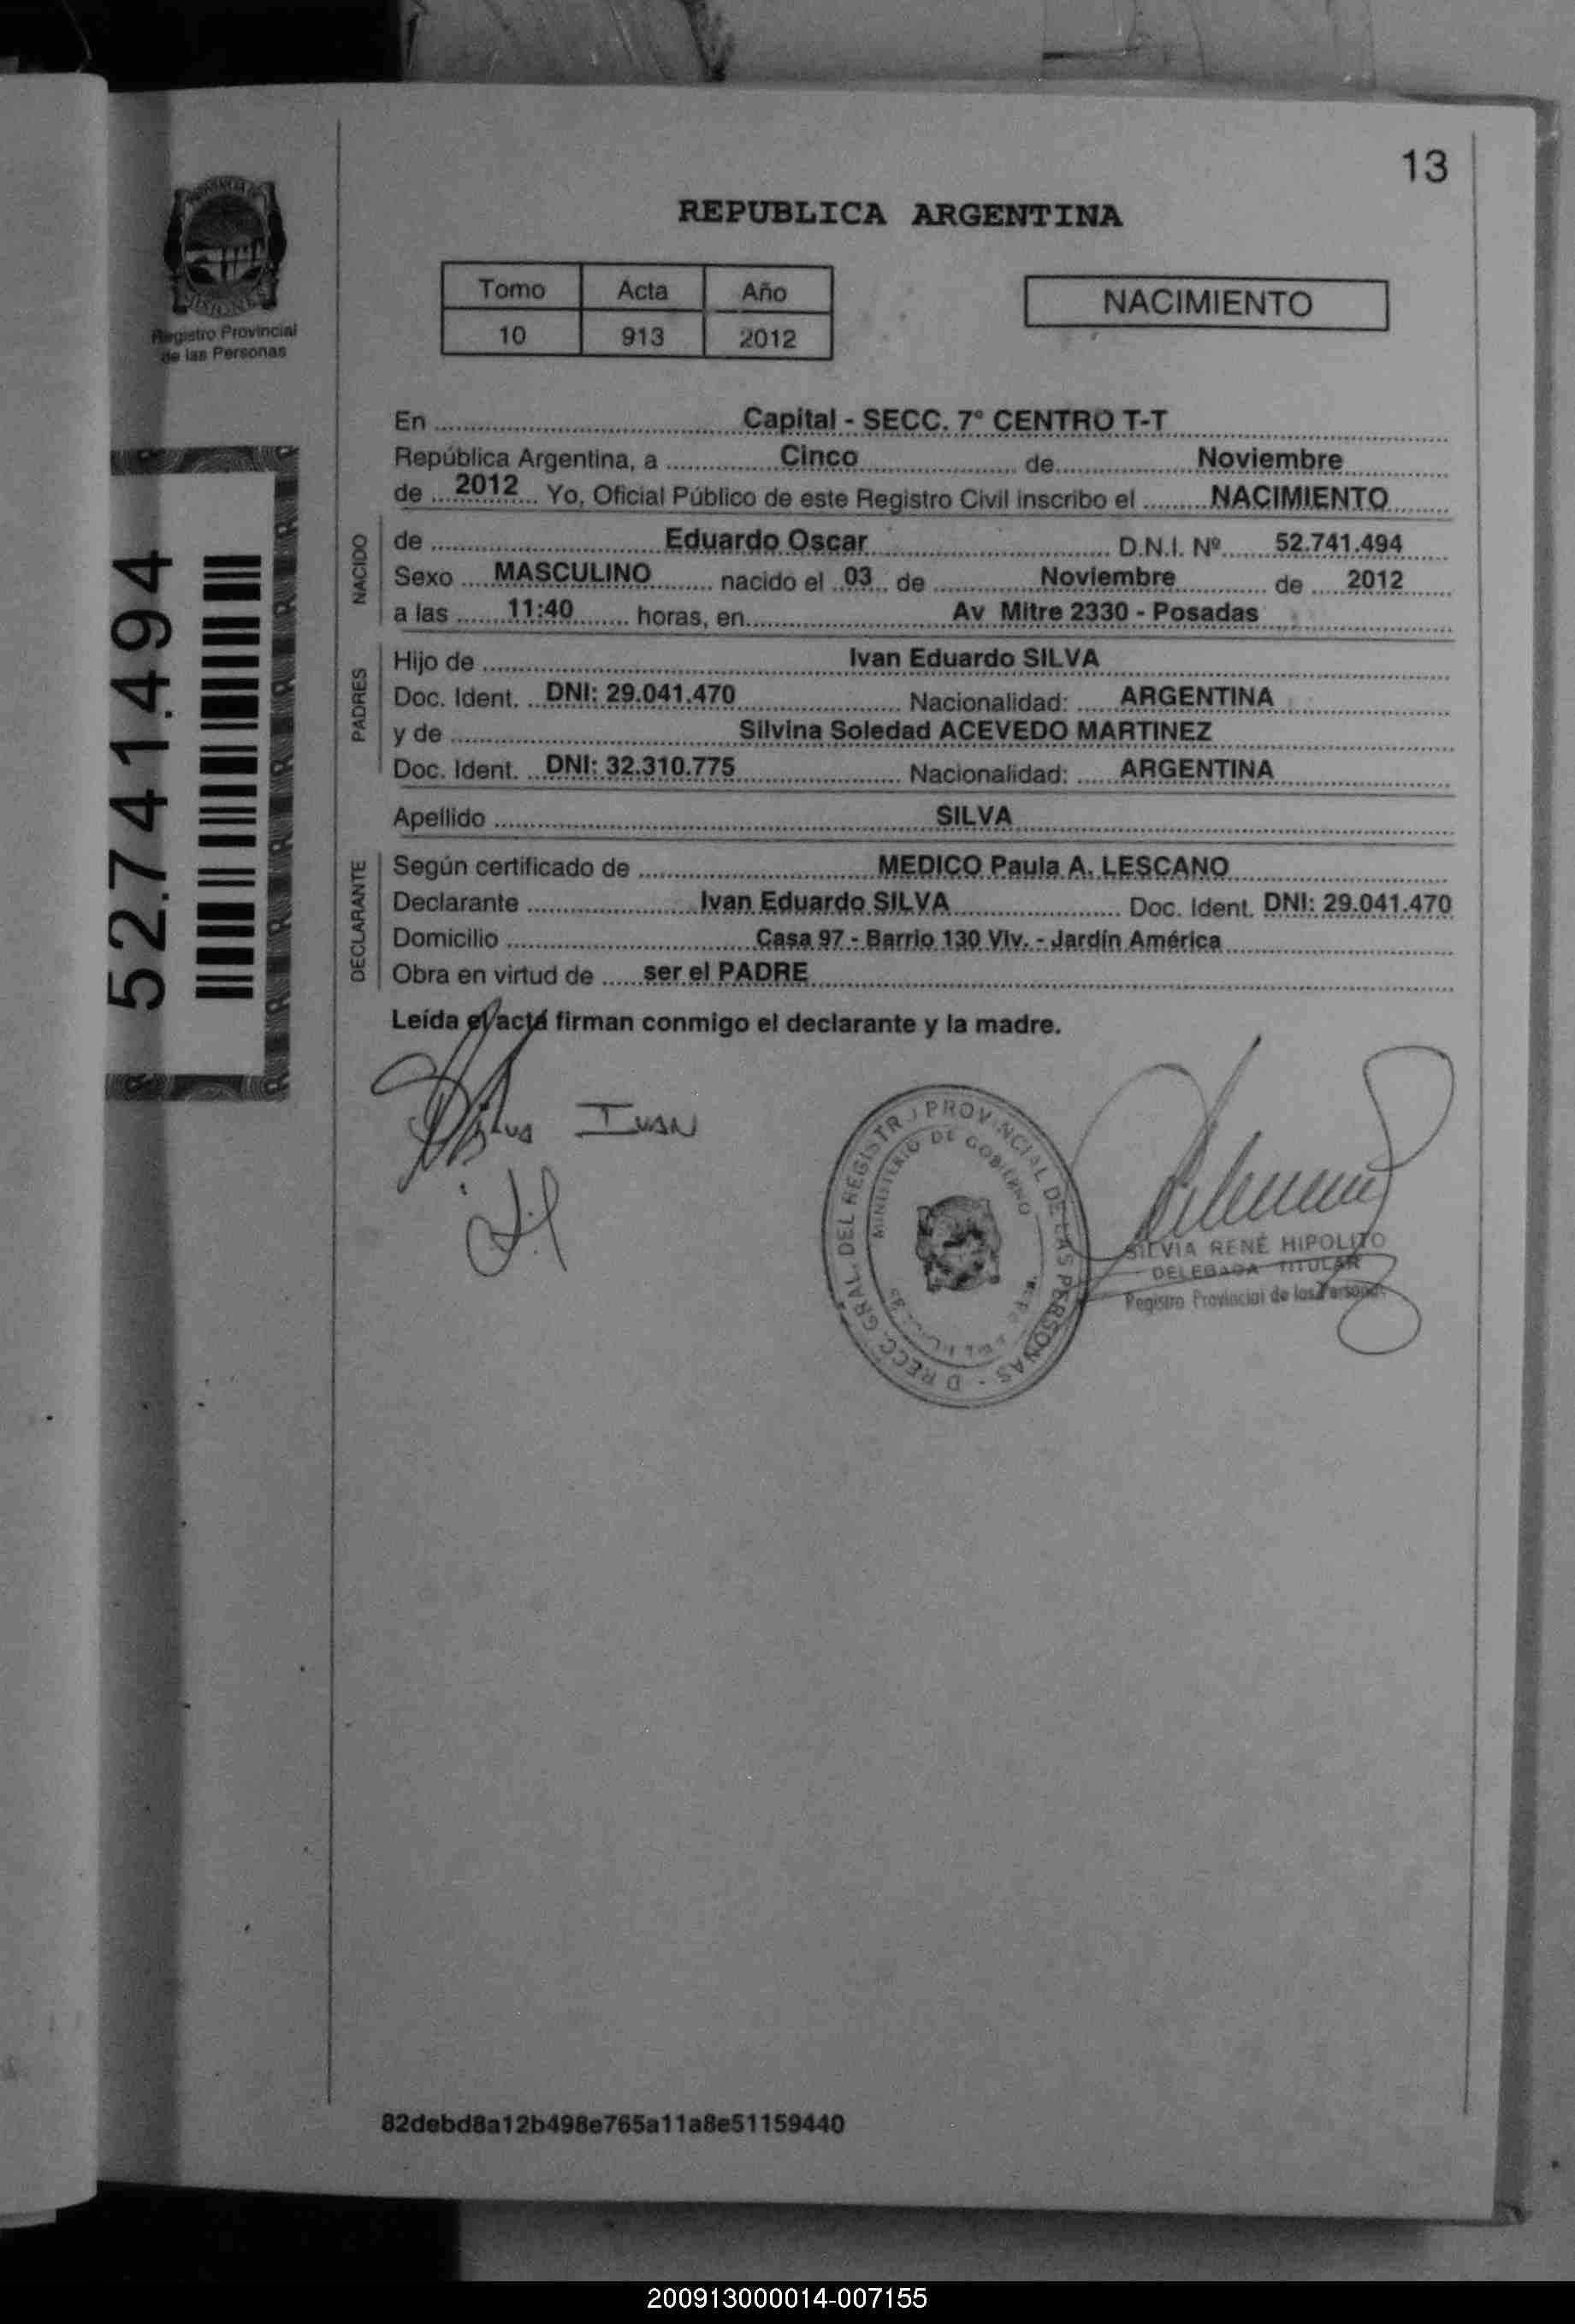 13
REPUBLICA ARGENTINA
PROVINCIA DE
MISIONES
Registro Provincial
de las Personas
Tomo Acta Año
10 913 2012
NACIMIENTO
En Capital - SECC. 7° CENTRO T-T
República Argentina, a Cinco de Noviembre
de 2012 Yo, Oficial Público de este Registro Civil inscribo el NACIMIENTO
NACIDO
de Eduardo Oscar D.N.I. Nº 52.741.494
Sexo MASCULINO nacido el 03 de Noviembre de 2012
a las 11:40 horas, en Av Mitre 2330 - Posadas
PADRES
Hijo de Ivan Eduardo SILVA
Doc. Ident. DNI: 29.041.470 Nacionalidad: ARGENTINA
y de Silvina Soledad ACEVEDO MARTINEZ
Doc. Ident. DNI: 32.310.775 Nacionalidad: ARGENTINA
Apellido SILVA
DECLARANTE
Según certificado de MEDICO Paula A. LESCANO
Declarante Ivan Eduardo SILVA Doc. Ident. DNI: 29.041.470
Domicilio Casa 97 - Barrio 130 Viv. - Jardín América
Obra en virtud de ser el PADRE
Leída el acta firman conmigo el declarante y la madre.
52.741.494
Silva IVAN
D RECC. GRAL. DEL REGISTRO PROVINCIAL DE LAS PERSONAS
MINISTERIO DE GOBIERNO
SILVIA RENÉ HIPOLITO
DELEGADA TITULAR
Registro Provincial de las Personas
82debd8a12b498e765a11a8e51159440
200913000014-007155